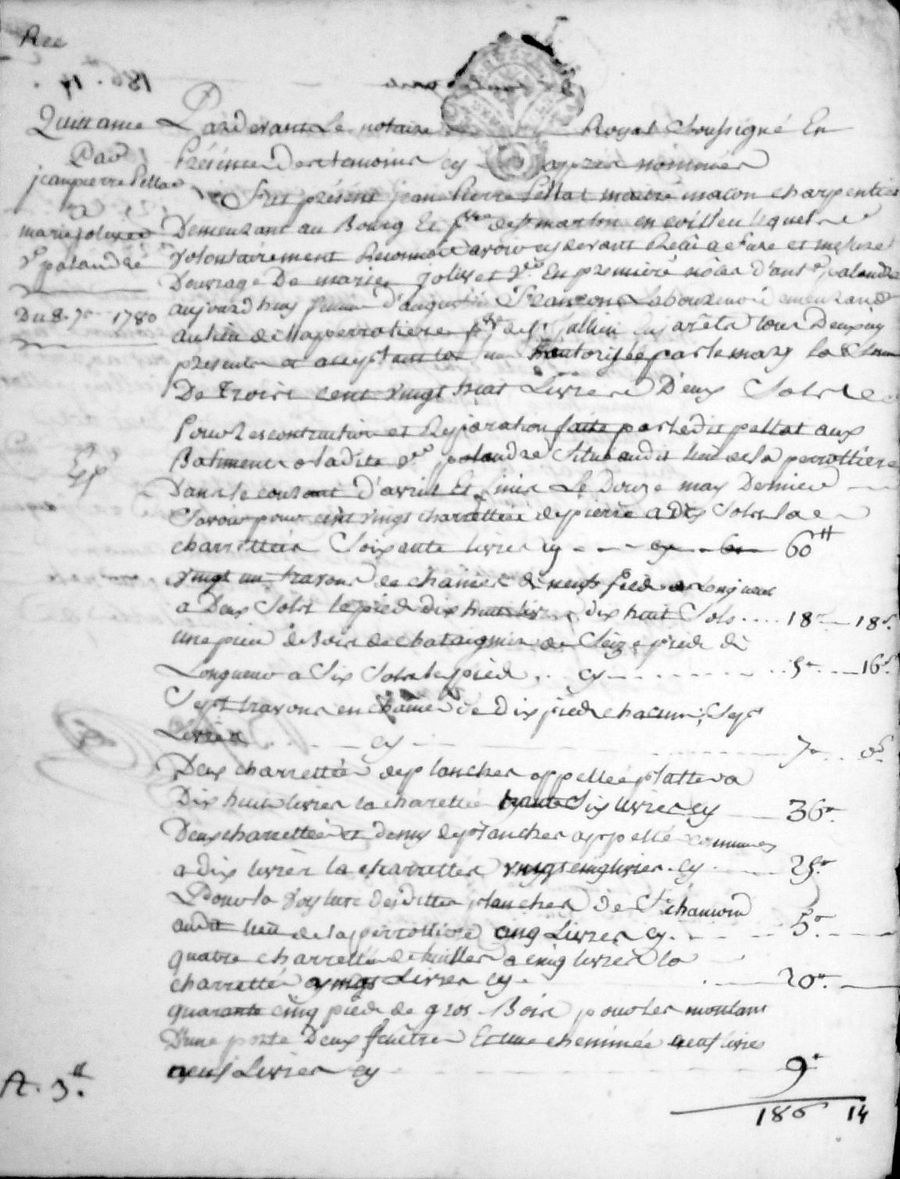 Quittance
Par
jean pierre Pellat
a
marie jolivet
v.e palandre
Du 8. 7.re 1780
Pardevant Le notaire Royal Soussigné En
Présence des temoins cy apres nommés
Fut présent jean Pierre Pellat maitre macon charpentier
Demeurant au Bourg Et p.sse de s.t martin en lequel de
volontairement Reconnoit avoir cy devant Reçu a et mesure
D'ouvrage De marie jolivet v.e En premiere nôces d'ant.e palandre
aujourdhuy femme d'augustin françon Laboureur demeurand
au lieu de la perrotiere p.sse de s.t jullien En jarêts tous Deux icy
presents et acceptant La authorisée par le mary la somme
De trois cent vingt huit Livres Deux Sols
Pour Rescontruction et Reparation faite par ledit pellat aux
Batiments a ladite v.e palandre situé audit lieu de la perrottiere
Dans le courant d'avril Et finis Le Douze may Dernier
Savoir pour cent vingt charrettée de pierre a dix Sols la
charrettée Soixante livres cy 60 tt
vingt un travons de chaines de neuf pied de Longueur
a Deux Sols le pied dix huit livres dix huit Sols .... 18 18 s.
une piece de Bois de chataignier de Seize pied de
Longueur a Six Sols le pied .. cy 16 s.
Sept travons en chaine de dix pied chacun, Sept
Livres cy 7 0 s.
Deux charrettée de planches appellée plattes a
Dix huit livres la charettée trente Six livres cy 36
Deux charrettée et demy de planches appellé communes
a dix livres la charrettée vingt cinq livres cy. 25
Pour la voyture desdittes planches de S.t chamond
audit lieu de la perrottiere cinq Livres cy. 5
quatre charrettée de a cinq livres la
charrettée vingt Livres cy 20
quarante cinq pied de gros Bois pour les montans
D'une porte Deux fenêtres Et une cheminée neuf livres
neuf Livres cy 9
A. 3. tt
186 14